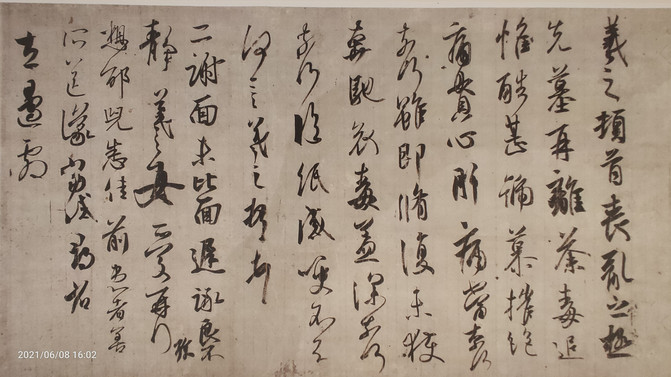 羲之頓首喪亂之極
先墓再離荼毒追
惟酷甚號慕摧絕
痛貫心肝痛當奈何
奈何雖即脩復未獲
奔馳哀毒益深奈何
奈何臨紙感哽不知
何言羲之頓首頓首
二謝面未比面遲詠良不
靜羲之女愛再拜
想邵兒悉佳前患者善
所送議當試尋省
左邊劇
2021/06/08 16:02